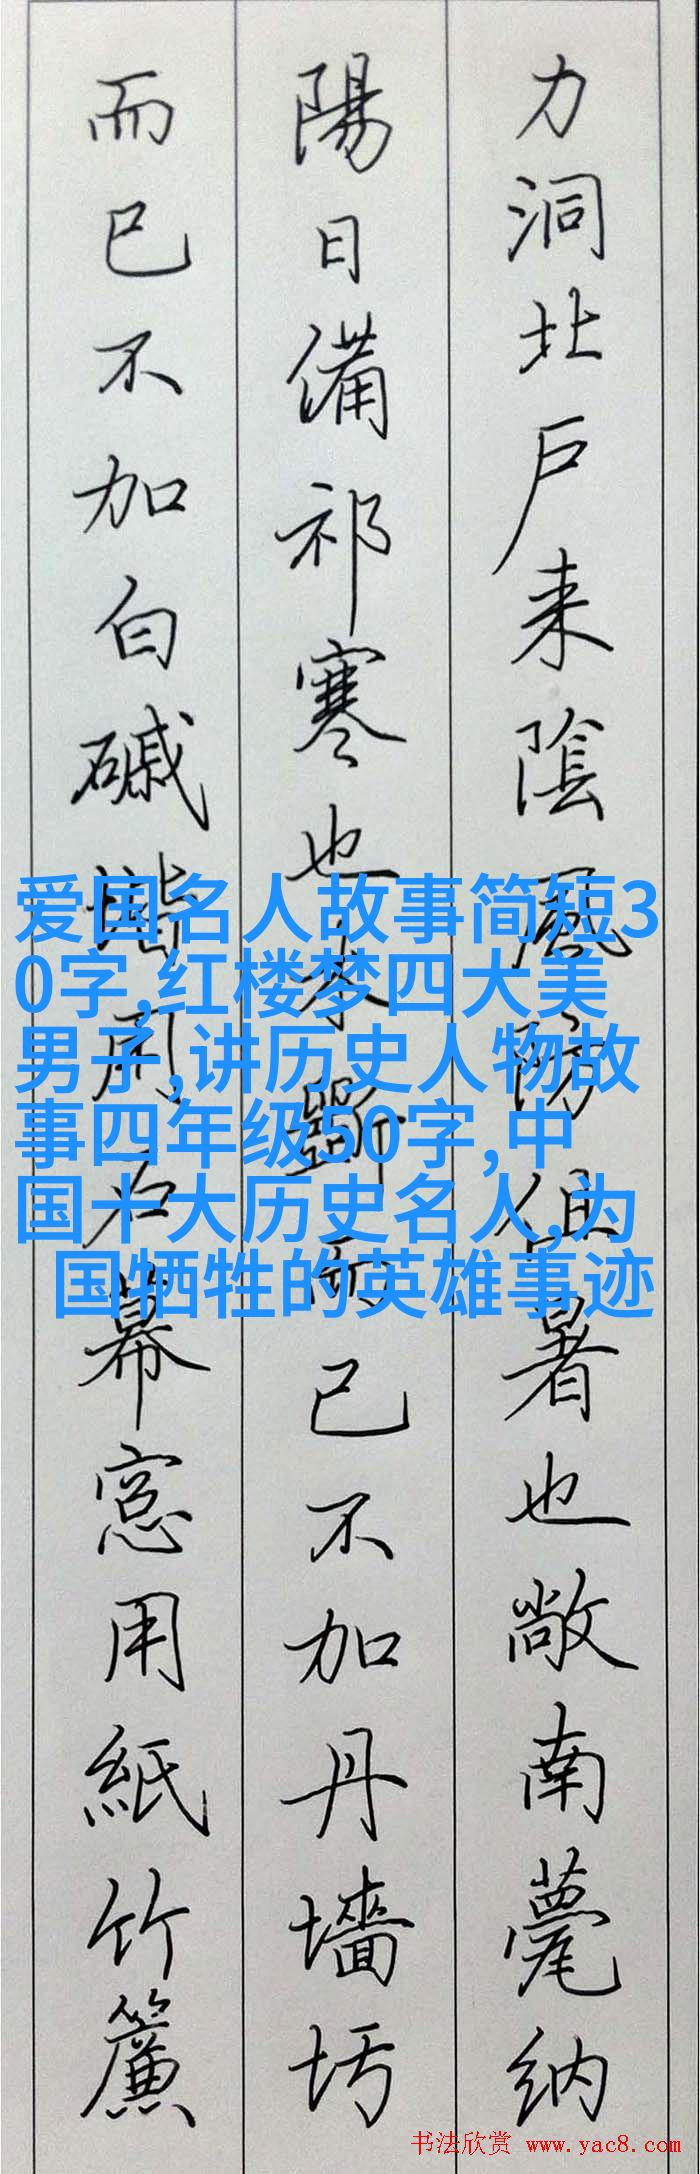 力洞北戶来陰風防徂暑也敞南甍纳
陽日備祁寒也木斲而已不加丹墻圬
而已不加白磩堦用石幂窓用紙竹簾
爱国名人故事简短3
0字,红楼梦四大美
男子,讲历史人物故
事四年级50字,中
国十大历史名人,为
国牺牲的英雄事迹
书法欣赏 www.yac8.com